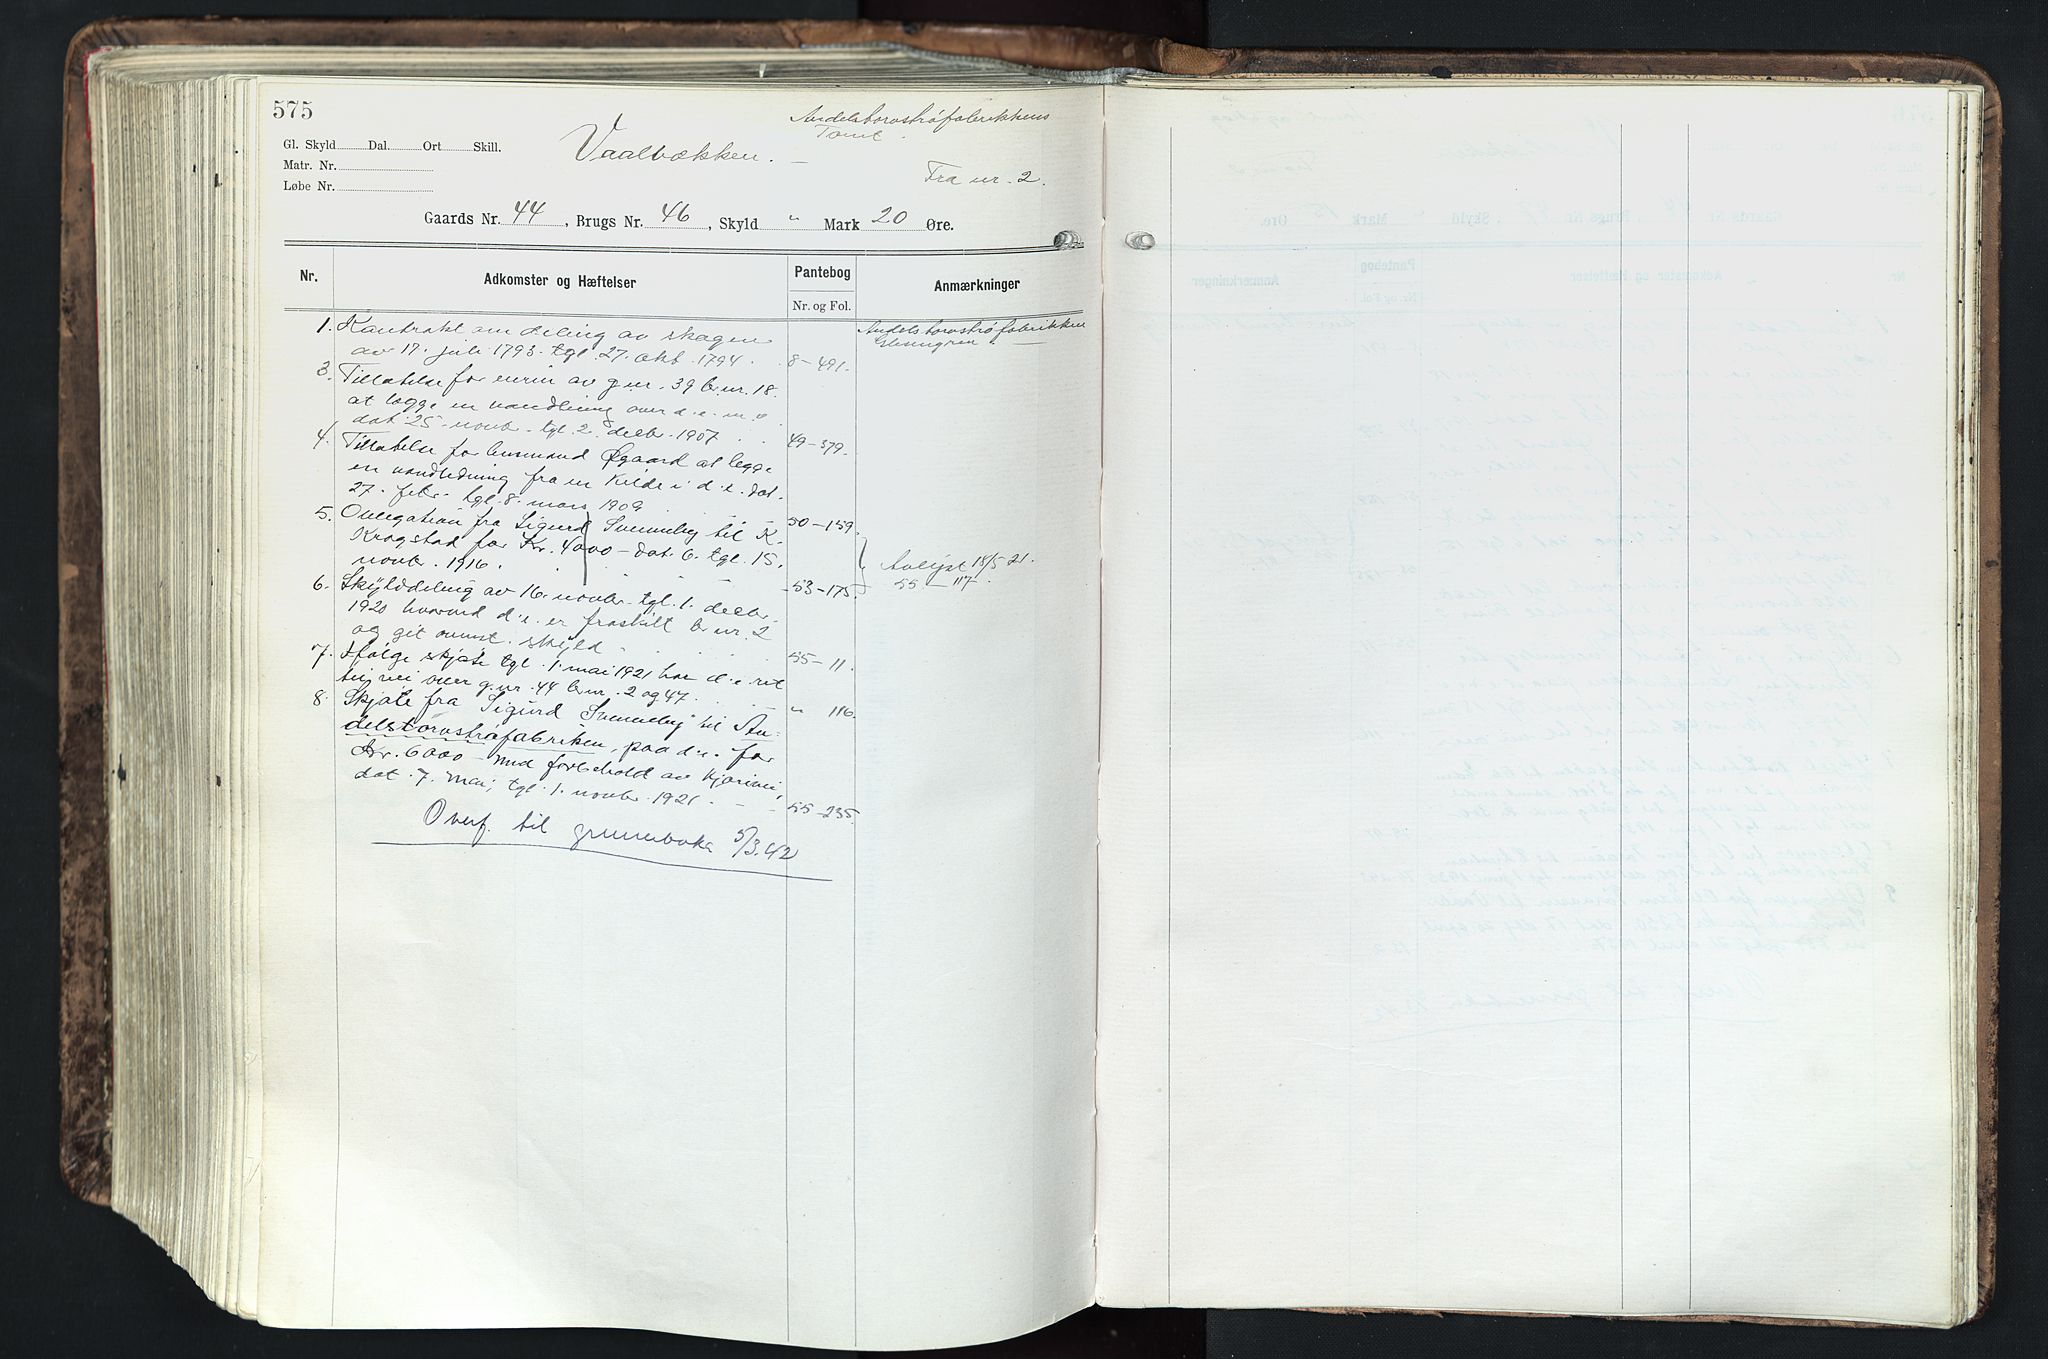 575
Andelstorvstrøfabrikkens
Tomt
Gl. Skyld Dal. Ort Skill.
Vaalbækken.
Matr. Nr.
Løbe Nr.
Fra nr. 2.
Gaards Nr. 44, Brugs Nr. 46, Skyld " Mark 20 Øre.
Nr. Adkomster og Hæftelser Pantebog Anmærkninger
Nr. og Fol.
1. Kontrakt om deling av skogen Andelstorvstrøfabrikken
av 17. juli 1793. tgl. 27. okt. 1794. 8-491.
3. Tillatelse for eieren av g.nr. 39 br.nr. 18.
at lægge en vandledning over d. e. m. v.
dat. 25. novbr. tgl. 2. decbr. 1907 49-379.
4. Tillatelse for lensmand Øgaard at legge
en vandledning fra en Kilde i d. e. dat.
27. febr. tgl. 8. mars 1909 50-159.
5. Obligation fra Sigurd Svenneby til K.
Krogstad for Kr. 4000 - dat. 6. tgl. 15.
novbr. 1916. 53-175. Avlyst 18/5 21.
55-117.
6. Skylddeling av 16. novbr. tgl. 1. decbr.
1920 hvorved d. e. er fraskilt br.nr. 2
og git ovenst. skyld 55-11.
7. Ifølge skjøte tgl. 1. mai 1921 har d. e. ret
til vei over g.nr. 44 br.nr. 2 og 47. " 116.
8. Skjøte fra Sigurd Svenneby til An-
delstorvstrøfabriken, paa d. e. for
Kr. 6000 - med forbehold av kjørevei,
dat. 7. mai, tgl. 1. novbr. 1921. 55-235.
Overf. til grunnboka 5/3.42